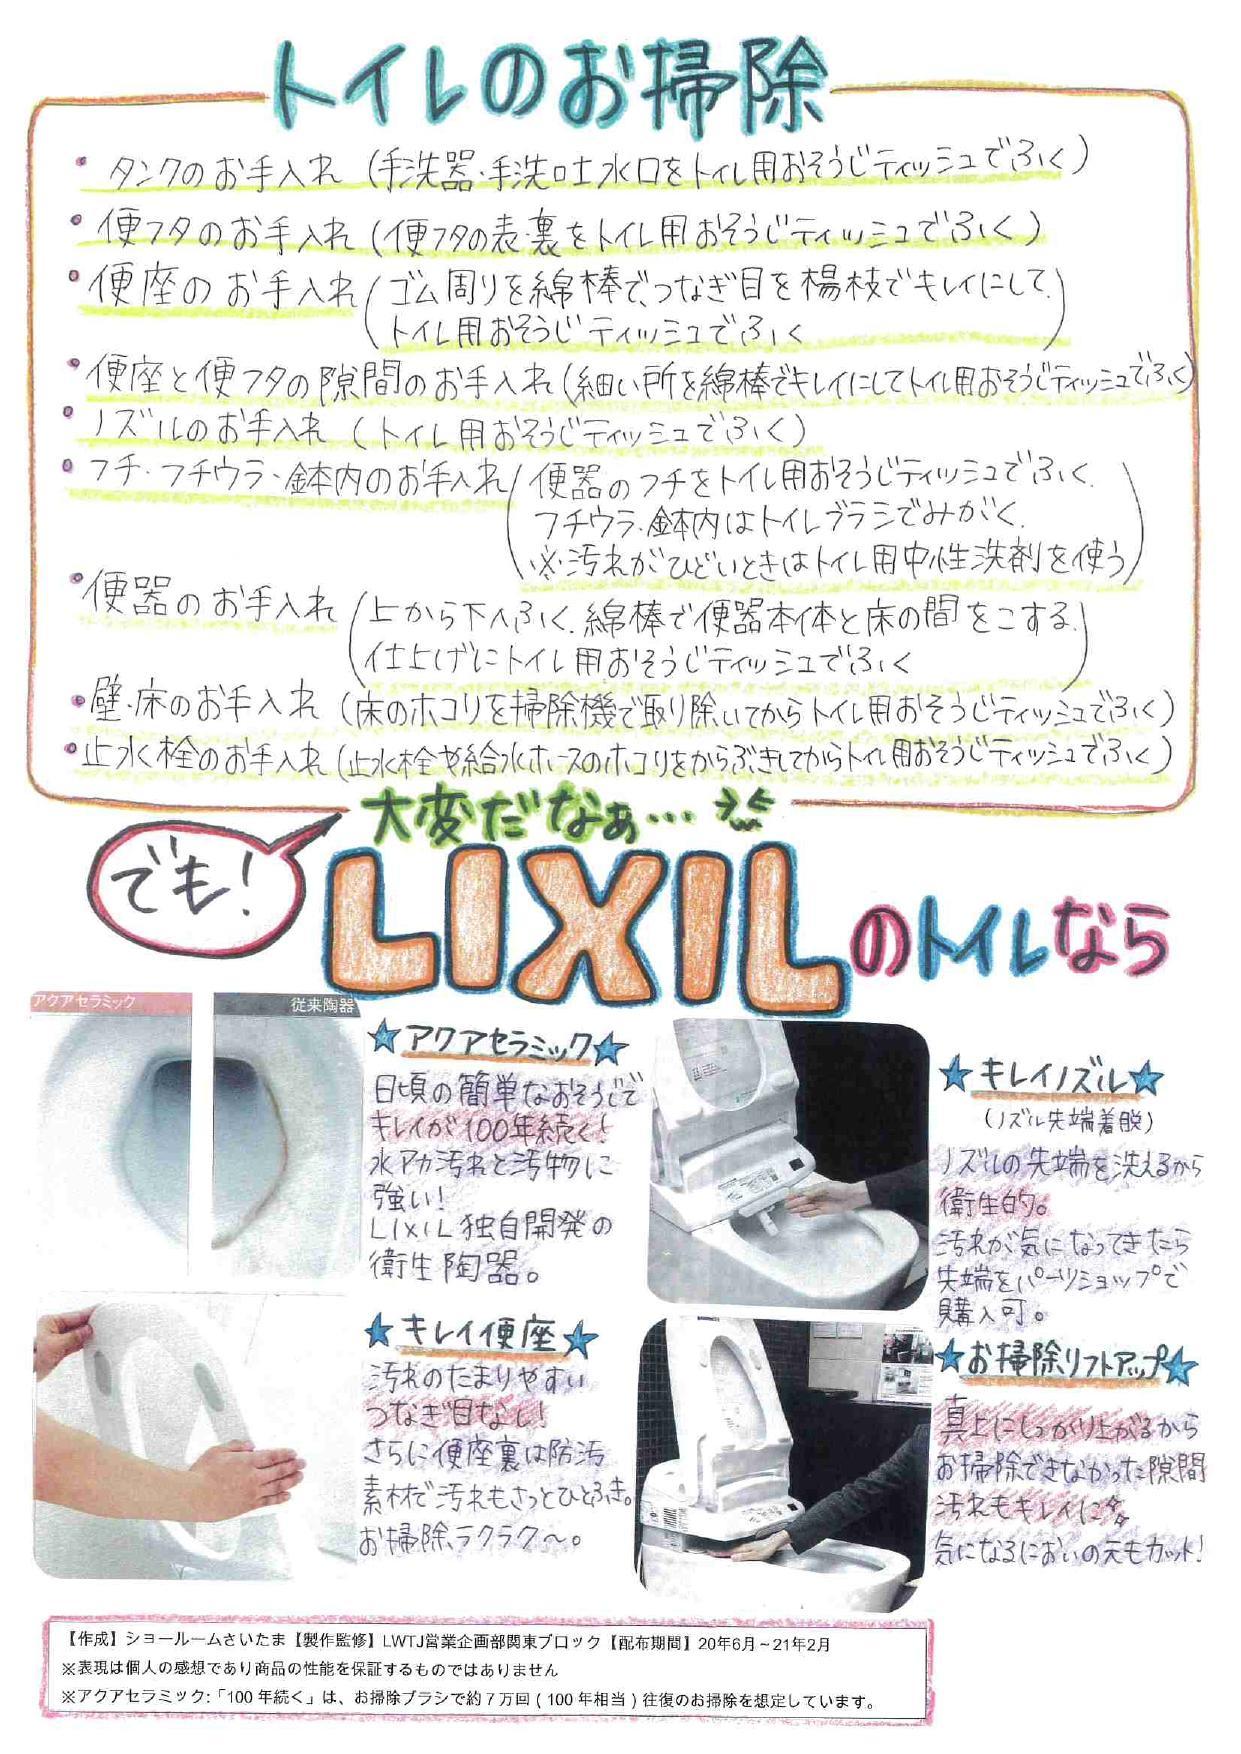 トイレのお掃除
・タンクのお手入れ(手洗器・手洗吐水口をトイレ用おそうじティッシュでふく)
・便フタのお手入れ(便フタの表・裏をトイレ用おそうじティッシュでふく)
・便座のお手入れ(ゴム周りを綿棒で、つなぎ目を楊枝でキレイにして、
トイレ用おそうじティッシュでふく)
・便座と便フタの隙間のお手入れ(細い所を綿棒でキレイにしてトイレ用おそうじティッシュでふく)
・ノズルのお手入れ(トイレ用おそうじティッシュでふく)
・フチ・フチウラ・鉢内のお手入れ(便器のフチをトイレ用おそうじティッシュでふく、
フチウラ・鉢内はトイレブラシでみがく、
※汚れがひどいときはトイレ用中性洗剤を使う)
・便器のお手入れ(上から下へふく、綿棒で便器本体と床の間をこする、
仕上げにトイレ用おそうじティッシュでふく)
・壁・床のお手入れ(床のホコリを掃除機で取り除いてからトイレ用おそうじティッシュでふく)
・止水栓のお手入れ(止水栓や給水ホースのホコリをからぶきしてからトイレ用おそうじティッシュでふく)
大変だなぁ…
でも!
LIXILのトイレなら
アクアセラミック
従来陶器
★アクアセラミック★
日頃の簡単なおそうじで
キレイが100年続く!
水アカ汚れと汚物に
強い!
LIXIL独自開発の
衛生陶器。
★キレイノズル★
(ノズル先端着脱)
ノズルの先端を洗えるから
衛生的。
汚れが気になってきたら
先端をパーツショップで
購入可。
★キレイ便座★
汚れのたまりやすい
つなぎ目なし!
さらに便座裏は防汚
素材で汚れもさっとひとふき。
お掃除ラクラク〜。
★お掃除リフトアップ★
真上にしっかり上がるから
お掃除できなかった隙間
汚れもキレイに
気になるにおいの元もカット!
【作成】ショールームさいたま【製作監修】LWTJ営業企画部関東ブロック【配布期間】20年6月~21年2月
※表現は個人の感想であり商品の性能を保証するものではありません
※アクアセラミック:「100年続く」は、お掃除ブラシで約7万回(100年相当)往復のお掃除を想定しています。